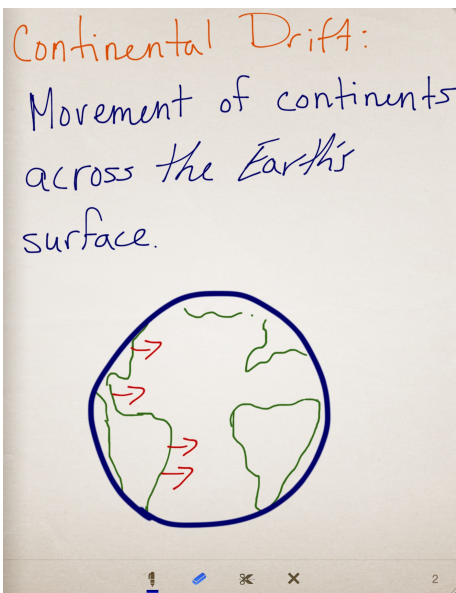 Continental Drift:
Movement of continents
across the Earth's
surface.
2